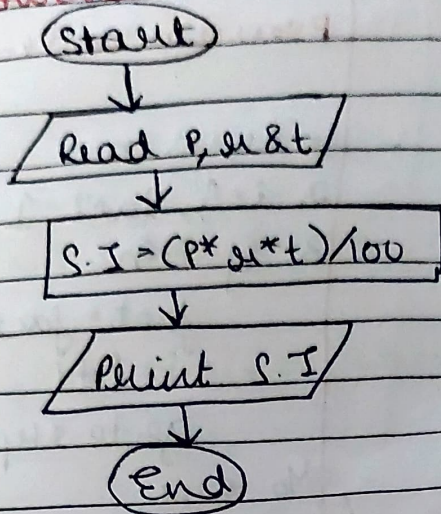 Start
Read P, r & t
S.I = (P * r * t) / 100
Print S.I
End